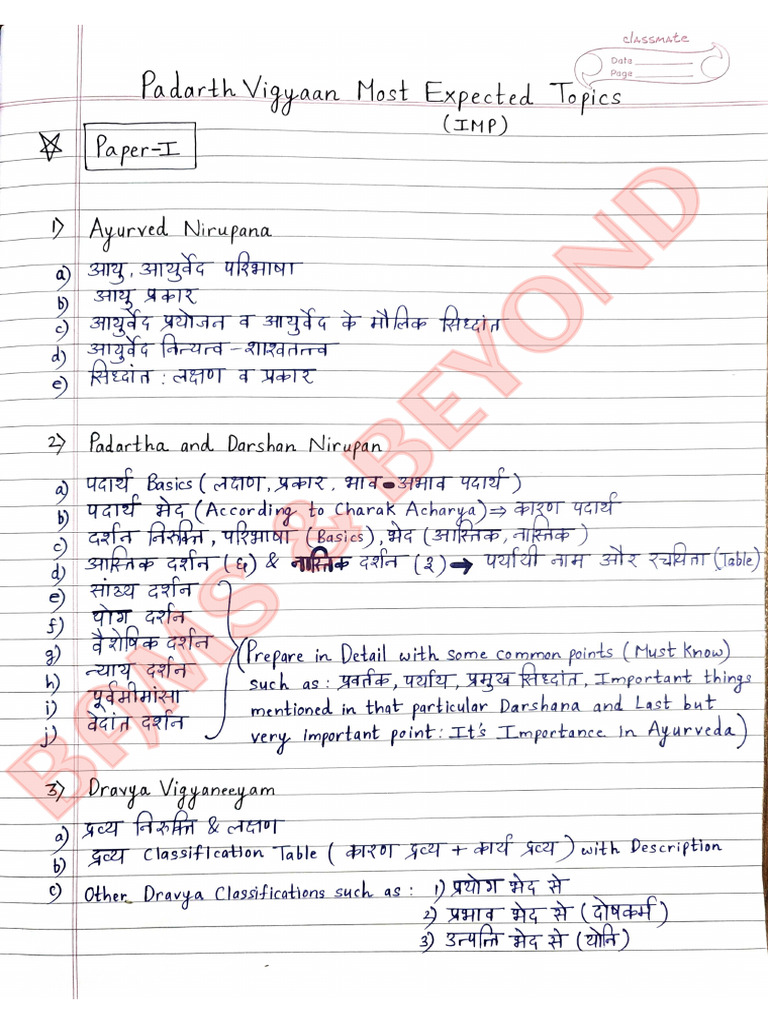 classmate
Date
Page
Padarth Vigyaan Most Expected Topics
(IMP)
Paper-I
1) Ayurved Nirupana
a) आयु, आयुर्वेद परिभाषा
b) आयु प्रकार
c) आयुर्वेद प्रयोजन व आयुर्वेद के मौलिक सिध्दांत
d) आयुर्वेद नित्यत्व - शाश्वतत्व
e) सिध्दांत : लक्षण व प्रकार
2) Padartha and Darshan Nirupan
a) पदार्थ Basics ( लक्षण, प्रकार, भाव - अभाव पदार्थ )
b) पदार्थ भेद (According to Charak Acharya) ⇒ कारण पदार्थ
c) दर्शन निरुक्ति, परिभाषा (Basics), भेद (आस्तिक, नास्तिक )
d) आस्तिक दर्शन (६) & नास्तिक दर्शन (३) → पर्यायी नाम और रचयिता (Table)
e) सांख्य दर्शन
f) योग दर्शन
g) वैशेषिक दर्शन
h) न्याय दर्शन
i) पूर्वमीमांसा
j) वेदांत दर्शन
(Prepare in Detail with some common points (Must Know)
such as : प्रवर्तक, पर्याय, प्रमुख सिध्दांत, Important things
mentioned in that particular Darshana and Last but
very important point : It's Importance in Ayurveda)
3) Dravya Vigyaneeyam
a) द्रव्य निरुक्ति & लक्षण
b) द्रव्य Classification Table ( कारण द्रव्य + कार्य द्रव्य ) with Description
c) Other Dravya Classifications such as : 1) प्रयोग भेद से
2) प्रभाव भेद से (दोषकर्म )
3) उत्पत्ति भेद से (योनि)
BAMS & BEYOND